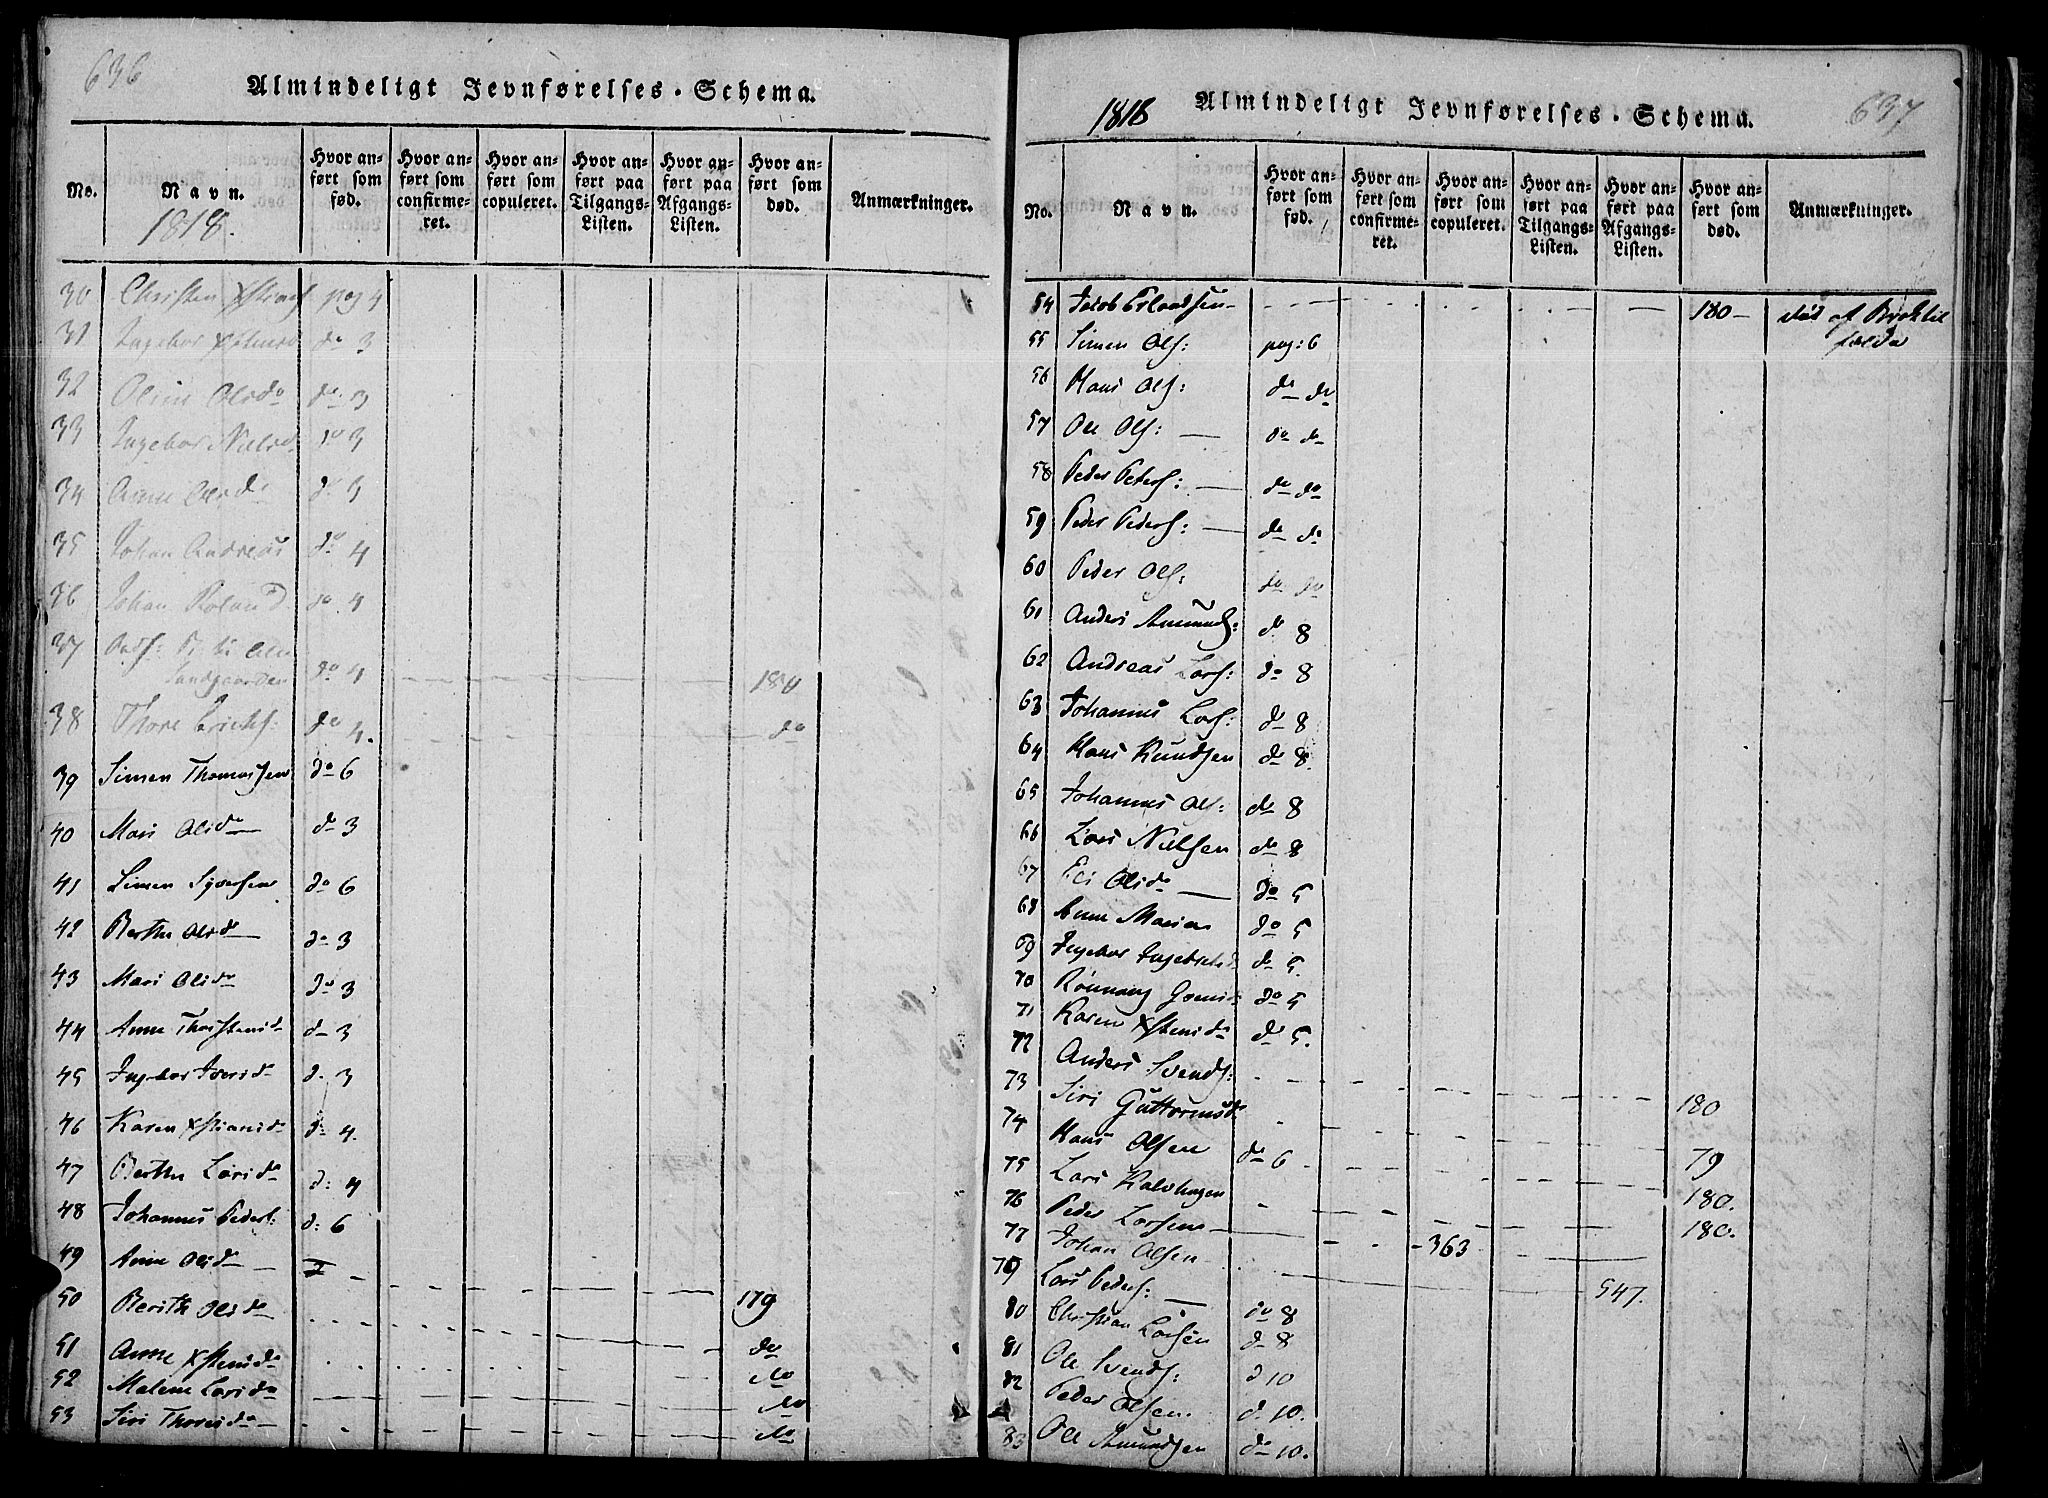 636
Almindeligt Jevnførelses-Schema.
No. Navn. 1818. Hvor anført som fød. Hvor anført som confirmeret. Hvor anført som copuleret. Hvor anført paa Tilgangs-Listen. Hvor anført paa Afgangs-Listen. Hvor anført som død. Anmærkninger.
30 Christen pag 4
31 Ingebor do 3
32 Oline Olsdr do: 3
33 Ingebor Nielsd. do 3
34 Anne Olsdr do 3
35 Johan Andreas do 4
36 Johan Roland do 4
37
Sandgaarden do 4 180
38 Thore Erichs: do 4. do
39 Simen Thomassen do 6
40 Mari Olsdr do 3
41 Simen Syversen do 6
42 Berthe Olsdr do 3
43 Mari Olsdr do 3
44 Anne Thorstensdr do 3
45 Ingebor Iversd. d. 3
46 Karen Xstiansdr do 4.
47 Berthe Larsdr d: 4
48 Johannes Peders: d: 6
49 Anne Olsdr
50 Berith Olsdr 179
51 Anne Xstensdr do
52 Malene Larsdr do
53 Siri Thoresdr do
do
1818 Almindeligt Jevnførelses-Schema. 637
No. Navn. Hvor anført som fød. Hvor anført som confirmeret. Hvor anført som copuleret. Hvor anført paa Tilgangs-Listen. Hvor anført paa Afgangs-Listen. Hvor anført som død. Anmærkninger.
54 Jacob Erlandsen 180
55 Simen Ols: pag: 6
56 Hans Ols: do do
57 Ole Ols: do do
58 Peder Peters: do do
59 Peder Peders: do do
60 Peder Ols: do do
61 Anders Amunds: do 8
62 Andreas Lars: do 8
63 Johannes Lars: do 8
64 Hans Knudsen do 8.
65 Johannes Ols: do 8
66 Lars Nielsen do 8
67 Eli Olsdr do 5
68 Anne Maria do 5
69 Ingebor do 5.
70 Rønnaug do 5
71 Karen Xstensdr do 5.
72 Anders Svends:
73 Siri Guttormsdr 180
74 Hans Olsen do 6 79
75 Lars Kalvhagen 180.
76 Peder Larsen 180.
77 Johan Olsen 363
79 Lars Peders: 547.
80 Christian Larsen do 8
81 Ole Svends: do 8
82 Peder Olsen d 10
83 Ole Amundsen d. 10.
do 10.